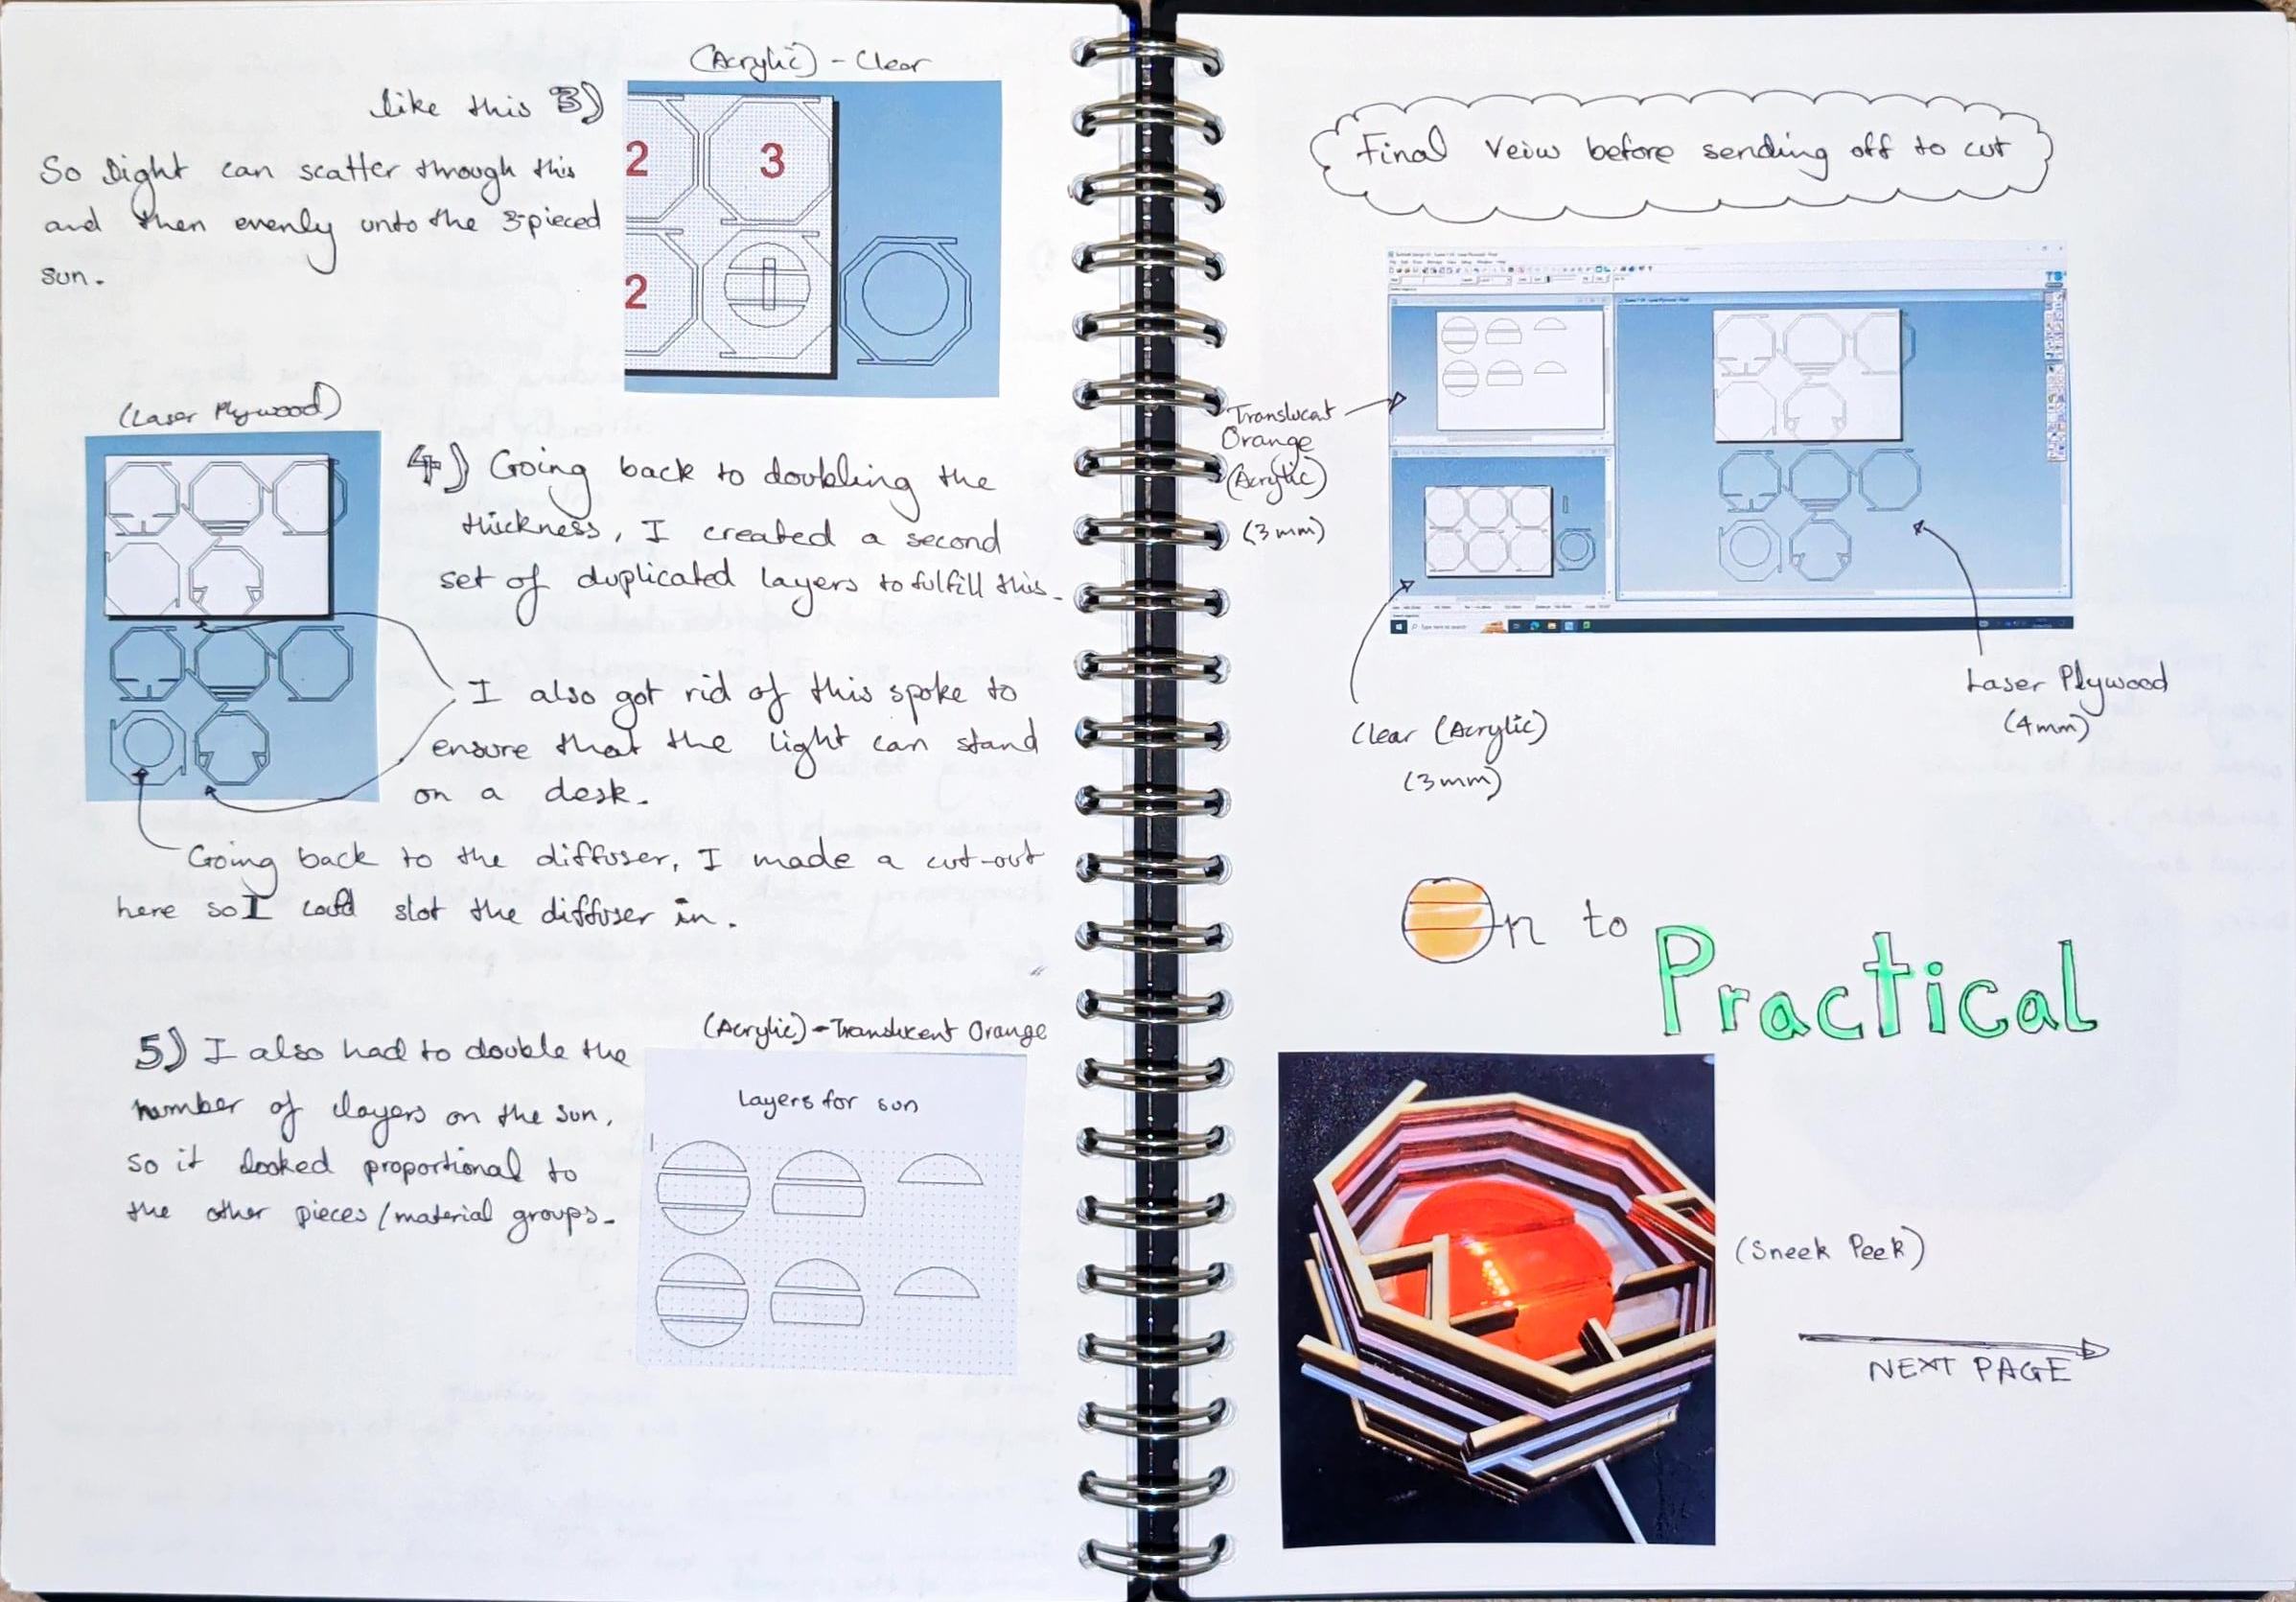 (Acrylic) - Clear
like this 3)
So Light can scatter through this
and then evenly unto the 3-pieced
sun.
2
3
2
(Laser Plywood)
4) Going back to doubling the
thickness, I created a second
set of duplicated layers to fulfill this.
I also got rid of this spoke to
ensure that the light can stand
on a desk.
Going back to the diffuser, I made a cut-out
here so I could slot the diffuser in.
5) I also had to double the
number of layers on the sun,
so it looked proportional to
the other pieces/material groups.
(Acrylic) - Translucent Orange
Layers for sun
Final Veiw before sending off to cut
Translucat
Orange
(Acrylic)
(3mm)
TS
Type here to search
Clear (Acrylic)
(3mm)
Laser Plywood
(4mm)
On to
Practical
(Sneek Peek)
NEXT PAGE